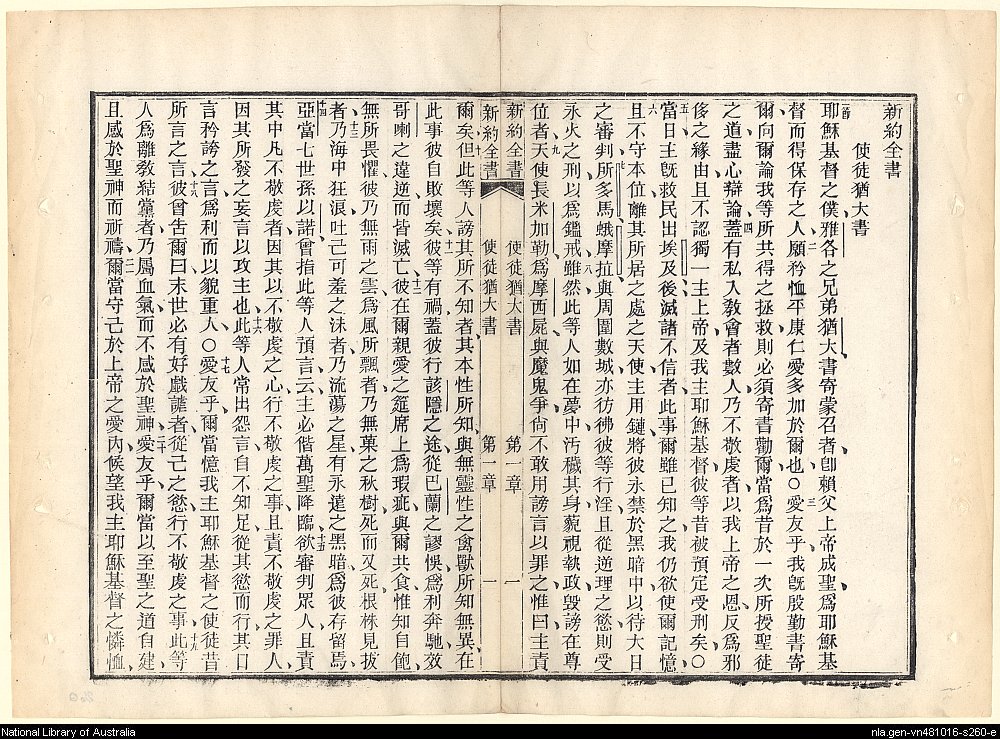 新約全書
使徒猶大書
一節耶穌基督之僕雅各之兄弟猶大書寄蒙召者卽賴父上帝成聖爲耶穌基
督而得保存之人願矜恤平康仁愛多加於爾也○愛友乎我旣殷勤書寄
爾向爾論我等所共得之拯救則必須寄書勸爾當爲昔於一次所授聖徒
之道盡心辯論蓋有私入敎會者數人乃不敬虔者以我上帝之恩反爲邪
侈之緣由且不認獨一主上帝及我主耶穌基督彼等昔被預定受刑矣○
當日主旣救民出埃及後滅諸不信者此事爾雖已知之我仍欲使爾記憶
且不守本位離其所居之處之天使主用鏈將彼永禁於黑暗中以待大日
之審判所多馬蛾摩拉與周圍數城亦彷彿彼等行淫且從逆理之慾則受
永火之刑以爲鑑戒雖然此等人如在夢中汚穢其身藐視執政毀謗在尊
位者天使長米加勒爲摩西屍與魔鬼爭尙不敢用謗言以罪之惟曰主責
新約全書 使徒猶大書 第一章 一
新約全書 使徒猶大書 第一章 一
爾矣但此等人謗其所不知者其本性所知與無靈性之禽獸所知無異在
此事彼自敗壞矣彼等有禍蓋彼行該隱之途從巴蘭之謬悞爲利奔馳效
哥喇之違逆而皆滅亡彼在爾親愛之筵席上爲瑕疵與爾共食惟知自飽
無所畏懼彼乃無雨之雲爲風所飄者乃無菓之秋樹死而又死根株見拔
者乃海中狂浪吐己可羞之沬者乃流蕩之星有永遠之黑暗爲彼存留焉
亞當七世孫以諾曾指此等人預言云主必偕萬聖降臨欲審判眾人且責
其中凡不敬虔者因其以不敬虔之心行不敬虔之事且責不敬虔之罪人
因其所發之妄言以攻主也此等人常出怨言自不知足從其慾而行其口
言矜誇之言爲利而以貌重人○愛友乎爾當憶我主耶穌基督之使徒昔
所言之言彼曾告爾曰末世必有好戲謔者從己之慾行不敬虔之事此等
人爲離敎結黨者乃屬血氣而不感於聖神愛友乎爾當以至聖之道自建
且感於聖神而祈禱爾當守己於上帝之愛內候望我主耶穌基督之憐恤
National Library of Australia
nla.gen-vn481016-s260-e